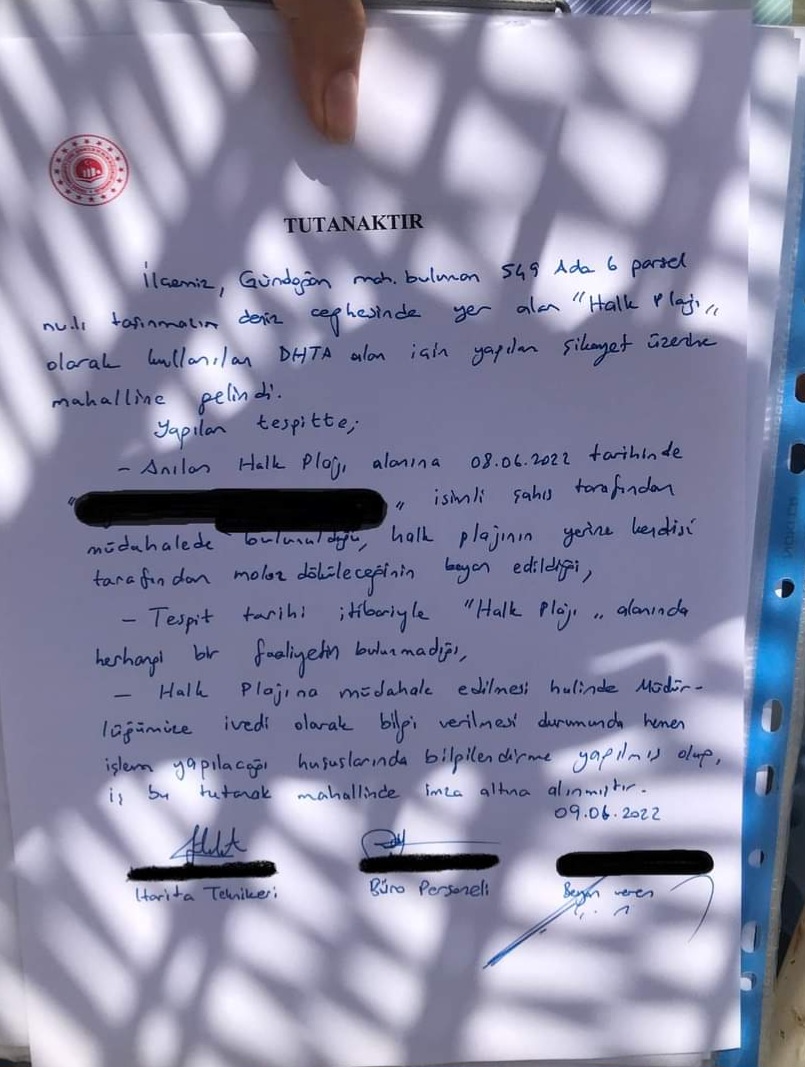 TUTANAKTIR
İlçemiz, Gündoğan mah. bulunan 549 Ada 6 parsel
nu.lı taşınmazın deniz cephesinde yer alan "Halk Plajı"
olarak kullanılan DHTA alan için yapılan şikayet üzerine
mahalline gelindi.
Yapılan tespitte;
- Anılan Halk Plajı alanına 08.06.2022 tarihinde
" " isimli şahıs tarafından
müdahalede bulunulduğu, halk plajının yerine kendisi
tarafından moloz döküleceğinin beyan edildiği,
- Tespit tarihi itibariyle "Halk Plajı" alanında
herhangi bir faaliyetin bulunmadığı,
- Halk Plajına müdahale edilmesi halinde Müdür-
lüğümüze ivedi olarak bilgi verilmesi durumunda hemen
işlem yapılacağı hususlarında bilgilendirme yapılmış olup,
iş bu tutanak mahallinde imza altına alınmıştır.
09.06.2022
Harita Teknikeri
Büro Personeli
Beyan veren